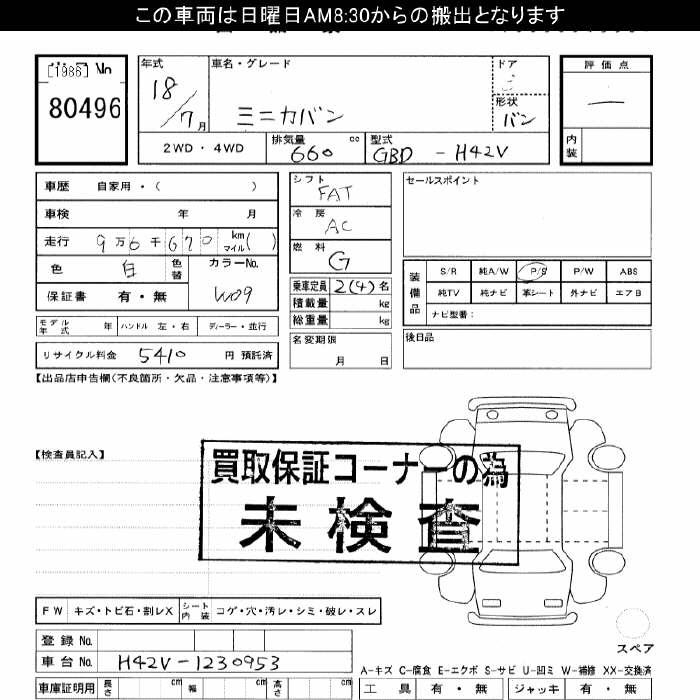 この車両は日曜日AM8:30からの搬出となります
[1986] No
80496
年式 18/7月
車名・グレード ミニカバン
ドア
形状 バン
評価点 —
内装
2WD・4WD
排気量 660 cc
型式 GBD - H42V
車歴 自家用・( )
車検 年 月
走行 9万6千670 km マイル( )
色 白 色替
カラーNo. W09
保証書 有・無
シフト FAT
冷房 AC
燃料 G
乗車定員 2(4)名
積載量 kg
総重量 kg
名変期限 月 日
セールスポイント
装備品
S/R 純A/W P/S P/W ABS
純TV 純ナビ 革シート 外ナビ エアB
ナビ型番:
後日品
モデル年式 年 ハンドル 左・右 ディーラー・並行
リサイクル料金 5410 円 預託済
【出品店申告欄(不良箇所・欠品・注意事項等)】
【検査員記入】
買取保証コーナーの為
未検査
FW キズ・トビ石・割レX シート内装 コゲ・穴・汚レ・シミ・破レ・スレ
登録 No.
車台 No. H42V-1230953
車庫証明用 長さ cm 幅 cm 高さ cm
スペア
A-キズ C-腐食 E-エクボ S-サビ U-凹ミ W-補修 XX-交換済
工具 有・無 ジャッキ 有・無